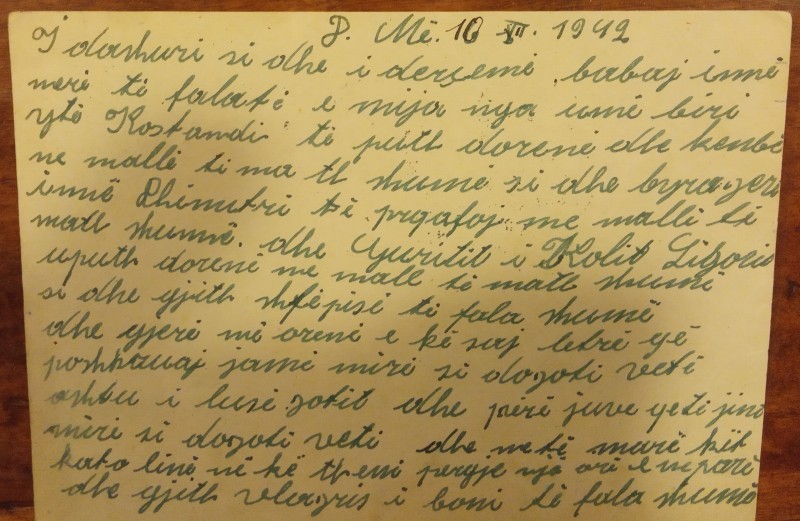 P. Më. 10 XII. 1942
I dashuri si dhe i derçemë babaj inmë
meri të falatë e mija nga unë biri
ytë Kostandi të puth dorenë dhe kenbë
me mallë ti ma th shumë si dhe byrazeri
inmë Dhimitri të prqafoj me mallë të
math shumë. dhe Gjuritit i Kolit Ligoris
uputh dorenë me mall të math shumë
si dhe gjith shfëpisë të fala shumë
dhe gjerë më orenë e kë saj letrë që
poshkruaj jami mirë si dozoti vetë
ashtu i lusë zotit dhe përë juve qeti jini
mirë si dozoti veti dhe me të marë kët
kato linë në kë theni pergje një orë e meparë
dhe gjith vlazris i boni të fala shumë